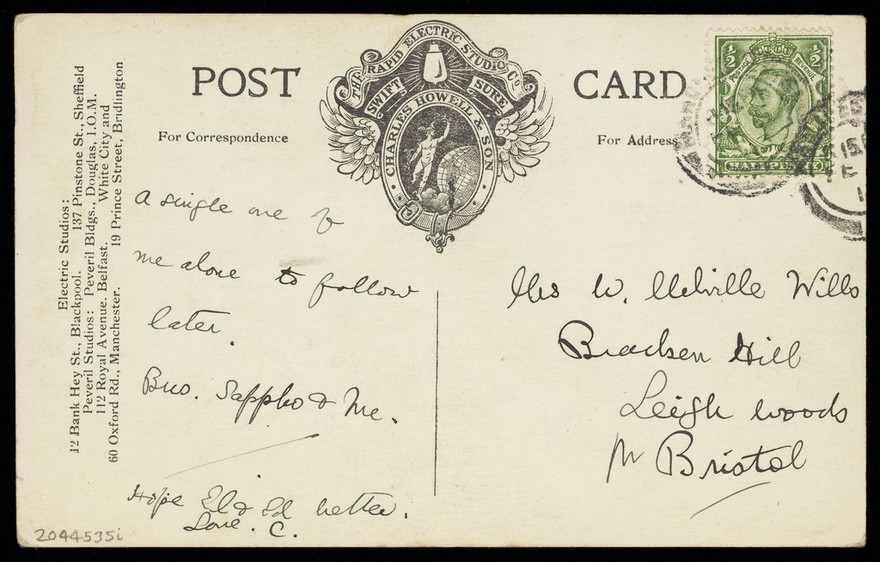 POST CARD
THE RAPID ELECTRIC STUDIO Co.
SWIFT SURE
CHARLES HOWELL & SON
For Correspondence
For Address
½ ½
POSTAGE REVENUE
HALFPENNY
Electric Studios:
12 Bank Hey St., Blackpool. 137 Pinstone St., Sheffield
Peveril Studios: Peveril Bldgs., Douglas, I.O.M.
112 Royal Avenue, Belfast. White City and
60 Oxford Rd., Manchester. 19 Prince Street, Bridlington
A single one of
me alone to follow
later.
Bus. Sappho & Me.
Hope El & Ed better.
Love. C.
Mrs W. Melville Wills
Bracken Hill
Leigh Woods
Nr Bristol
2044535i